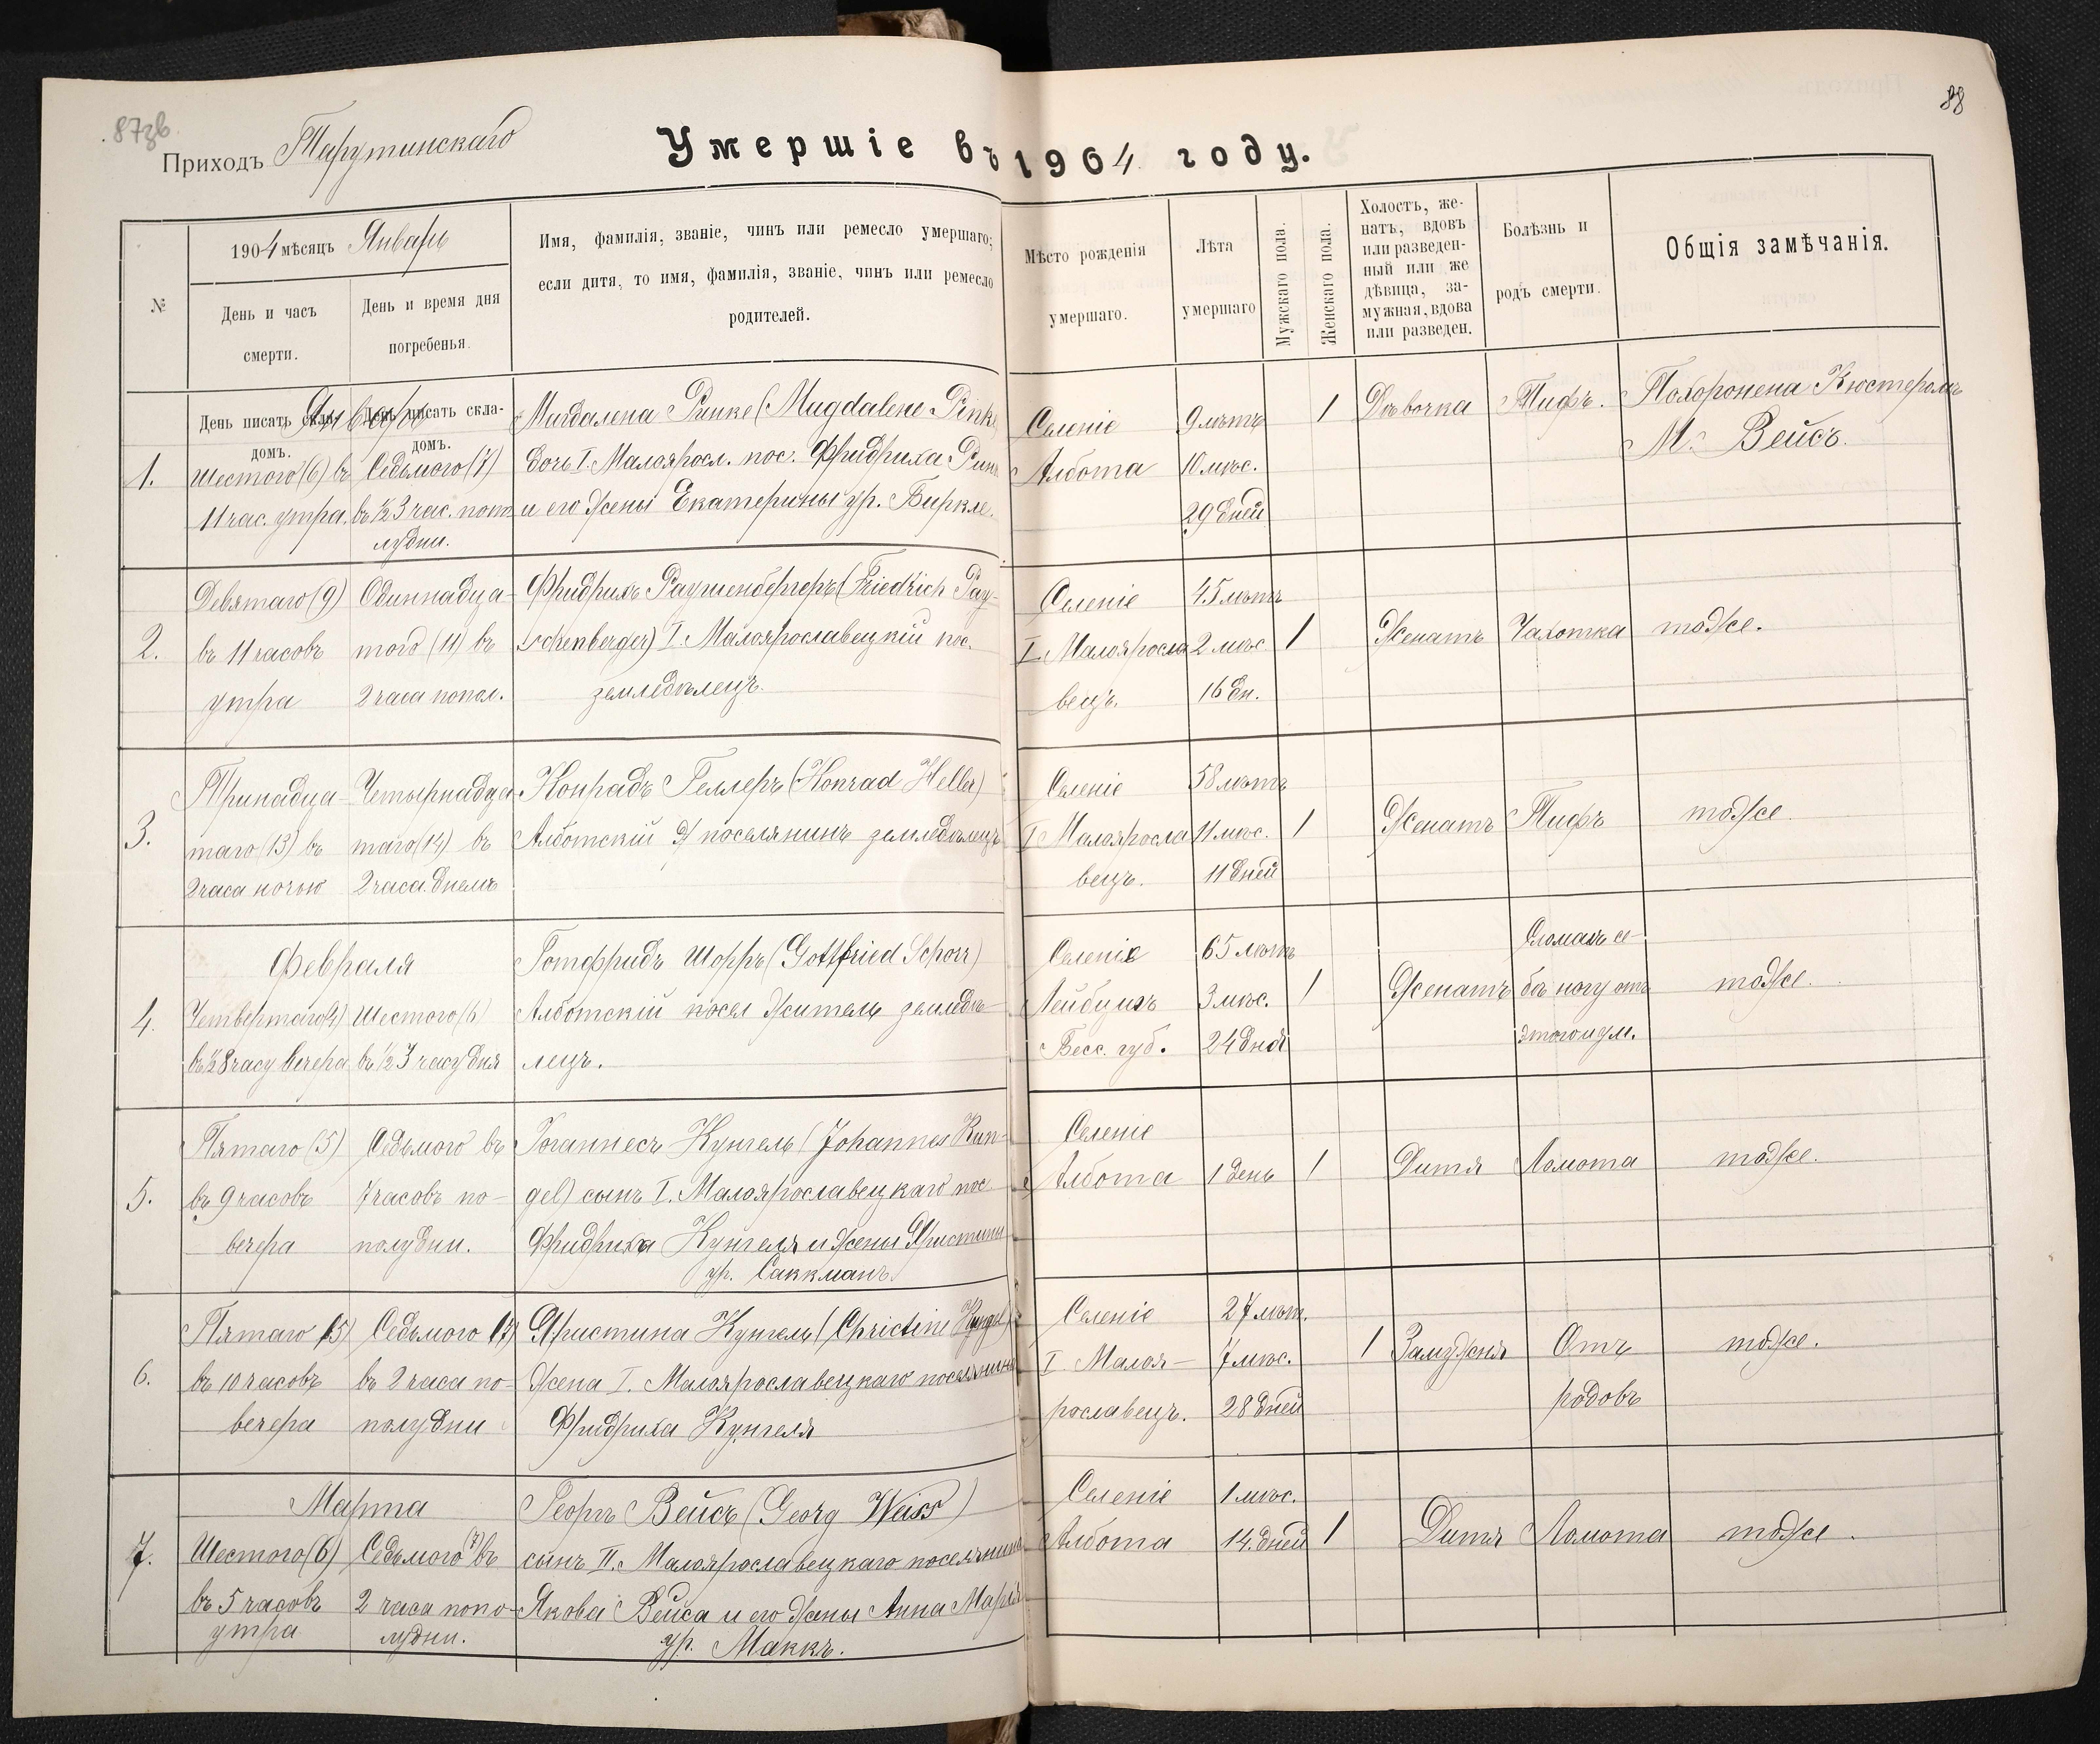 87зв.
88
Приходъ Тарутинскаго
Умершіе въ 1904 году.
№
1904 мѣсяцъ Январь
День и часъ смерти.
День и время дня погребенья.
Имя, фамилія, званіе, чинъ или ремесло умершаго;
если дитя, то имя, фамилія, званіе, чинъ или ремесло
родителей.
Мѣсто рожденія умершаго.
Лѣта умершаго
Мужскаго пола.
Женскаго пола.
Холостъ, же-
натъ, вдовъ
или разведен-
ный или же
дѣвица, за-
мужная, вдова
или разведен.
Болѣзнь и родъ смерти.
Общія замѣчанія.
День писать скла-
домъ.
День писать скла-
домъ.
Января
1.
Шестого (6) въ
11 час. утра.
Седьмого (7)
въ ½ 3 час. попо
лудни.
Магдалена Ринке (Magdalene Rinke
дочь I. Малояросл. пос. Фридриха Ринк
и его жены Екатерины ур. Биркле.
Селеніе
Албота
9 лѣтъ
10 мѣс.
29 дней
1
Дѣвочка
Тифъ.
Похоронена Кюстеромъ
М. Вейсъ.
2.
Девятаго (9)
въ 11 часовъ
утра
Одиннадца-
того (11) въ
2 часа попол.
Фридрихъ Раушенбергеръ (Friedrich Rau-
schenberger) I. Малоярославецкій пос.
земледѣлецъ.
Селеніе
I. Малояросла
вецъ.
45 лѣтъ
2 мѣс
16 дн.
1
Женатъ
Чахотка
тоже.
3.
Тринадца-
таго (13) въ
2 часа ночью
Четырнадца
таго (14) въ
2 часа днемъ
Конрадъ Геллеръ (Konrad Heller)
Алботскій поселянинъ земледѣлецъ
Селеніе
I Малояросла
вецъ.
58 лѣтъ
11 мѣс.
11 дней
1
Женатъ
Тифъ
тоже.
Февраля
4.
Четвертаго (4)
въ ½ 8 часу вечера
Шестого (6)
въ ½ 3 часу дня
Готфридъ Шорръ (Gottfried Schorr)
Алботскій посел житель земледѣ-
лецъ.
Селеніе
Лейбцихъ
Бесс. губ.
65 лѣтъ
3 мѣс.
24 дня
1
Женатъ
Сломалъ се-
бѣ ногу отъ
этого и ум.
тоже.
5.
Пятаго (5)
въ 9 часовъ
вечера
Седьмого въ
7 часовъ по-
полудни.
Іоганнесъ Кунгель (Johannes Kun-
gel) сынъ I. Малоярославецкаго пос.
Фридриха Кунгеля и жены Христины
ур. Саккманъ.
Селеніе
Албота
1 день
1
Дитя
Ломота
тоже.
6.
Пятаго (5)
въ 10 часовъ
вечера
Седьмого (7)
въ 2 часа по-
полудни
Христина Кунгель (Christine Kungel)
жена I. Малоярославецкаго поселянина
Фридриха Кунгеля
Селеніе
I. Малоя-
рославецъ.
27 лѣт.
7 мѣс.
28 дней
1
Замужня
Отъ
родовъ
тоже.
Марта
7.
Шестого (6)
въ 5 часовъ
утра
Седьмого (7) въ
2 часа попо-
лудни.
Георгъ Вейсъ (Georg Weiss)
сынъ II. Малоярославецкаго поселянина
Якова Вейса и его жены Анна Марія
ур. Маккъ.
Селеніе
Албота
1 мѣс.
14. дней
1
Дитя
Ломота
тоже.